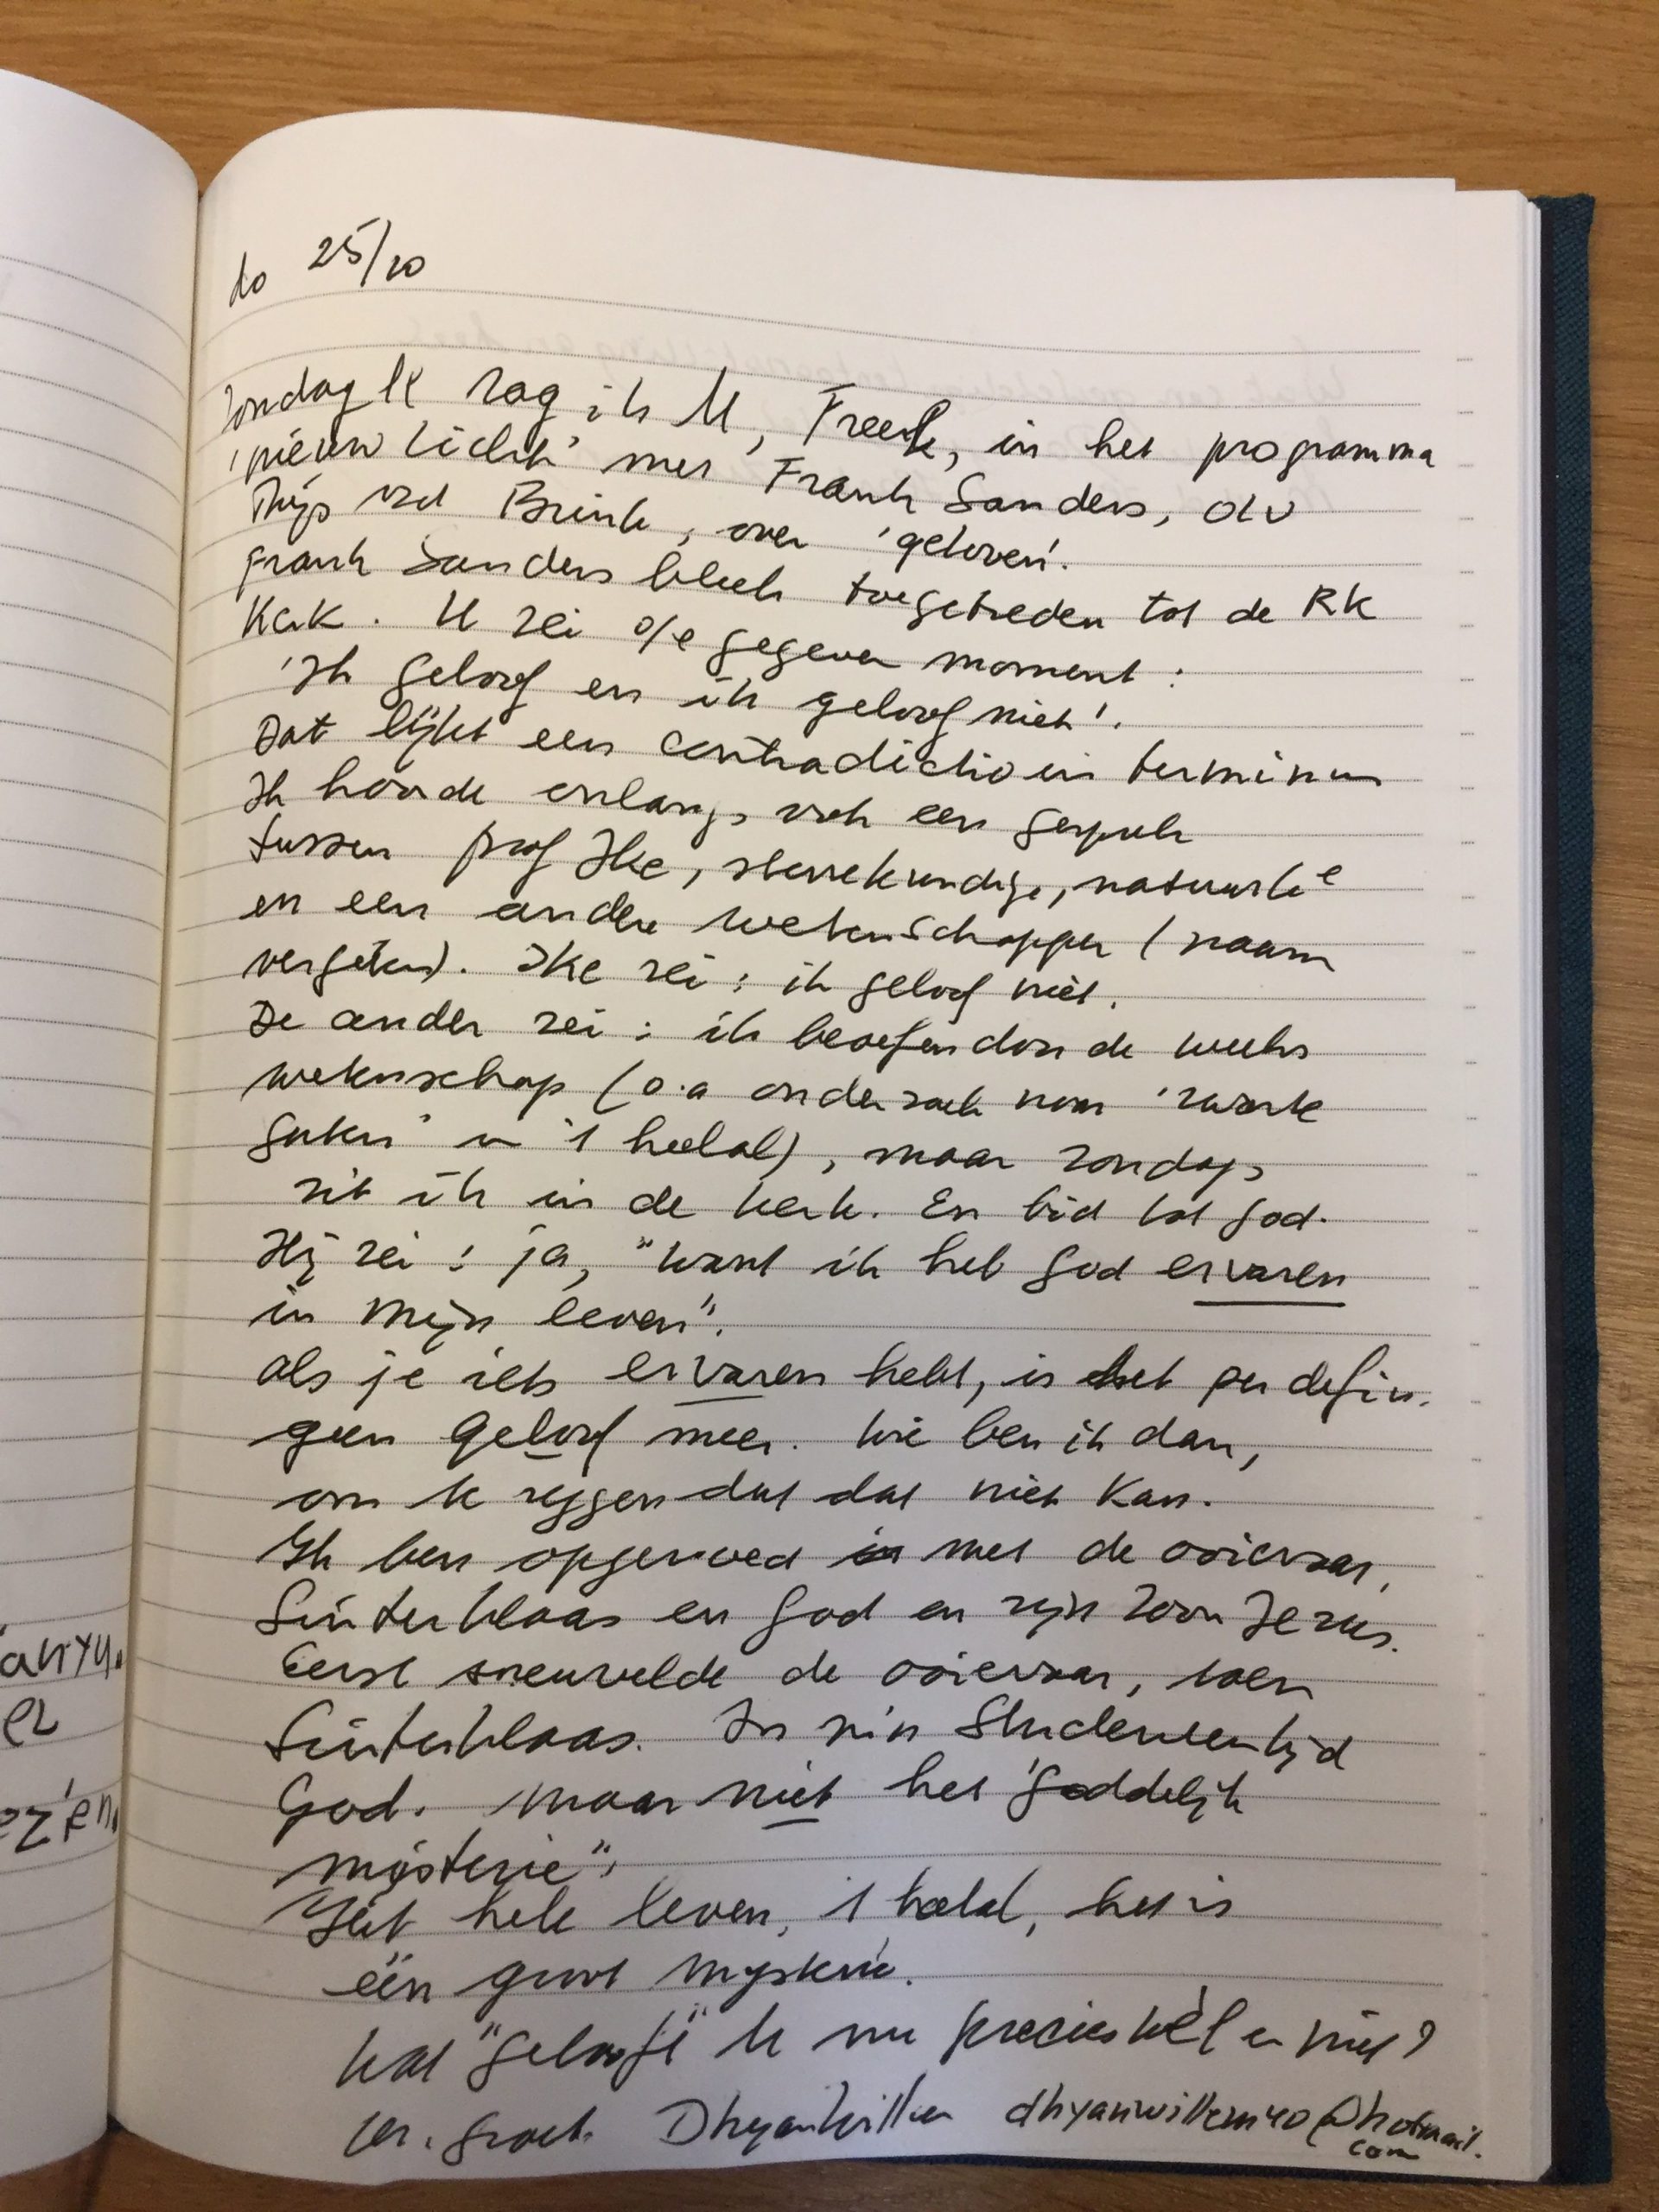 do 25/10
Zondag ll zag ik U, Freek, in het programma
'nieuw licht' met Frank Sanders, olv
Thijs vd Brink, over 'geloven'.
Frank Sanders bleek toegetreden tot de RK
Kerk. U zei o/e gegeven moment:
'Ik geloof en ik geloof niet'.
Dat lijkt een contradictio in terminus
Ik hoorde onlangs ook een gesprek
tussen prof Ike, sterrekundige, natuurk e
en een andere wetenschapper (naam
vergeten). Ike zei: ik geloof niet.
De ander zei: ik beoefen door de weeks
wetenschap (o.a onderzoek naar 'zwarte
gaten' in 't heelal), maar zondags
zit ik in de kerk. En bid tot God.
Hij zei: ja, "want ik heb God ervaren
in mijn leven".
als je iets ervaren hebt, is het per defin.
geen geloof meer. Wie ben ik dan,
om te zeggen dat dat niet kan.
Ik ben opgevoed met de ooievaar,
Sinterklaas en God en zijn zoon Jezus.
Eerst sneuvelde de ooievaar, toen
Sinterklaas. In mijn Studententijd
God. maar niet het 'goddelijk
mysterie".
Het hele leven, 't heelal, het is
één groot mysterie.
Wat "gelooft" U nu precies wèl en niet?
vr. groet. Dhyan Willem dhyanwillem40@hotmail.
com
anty.
er
ezien.